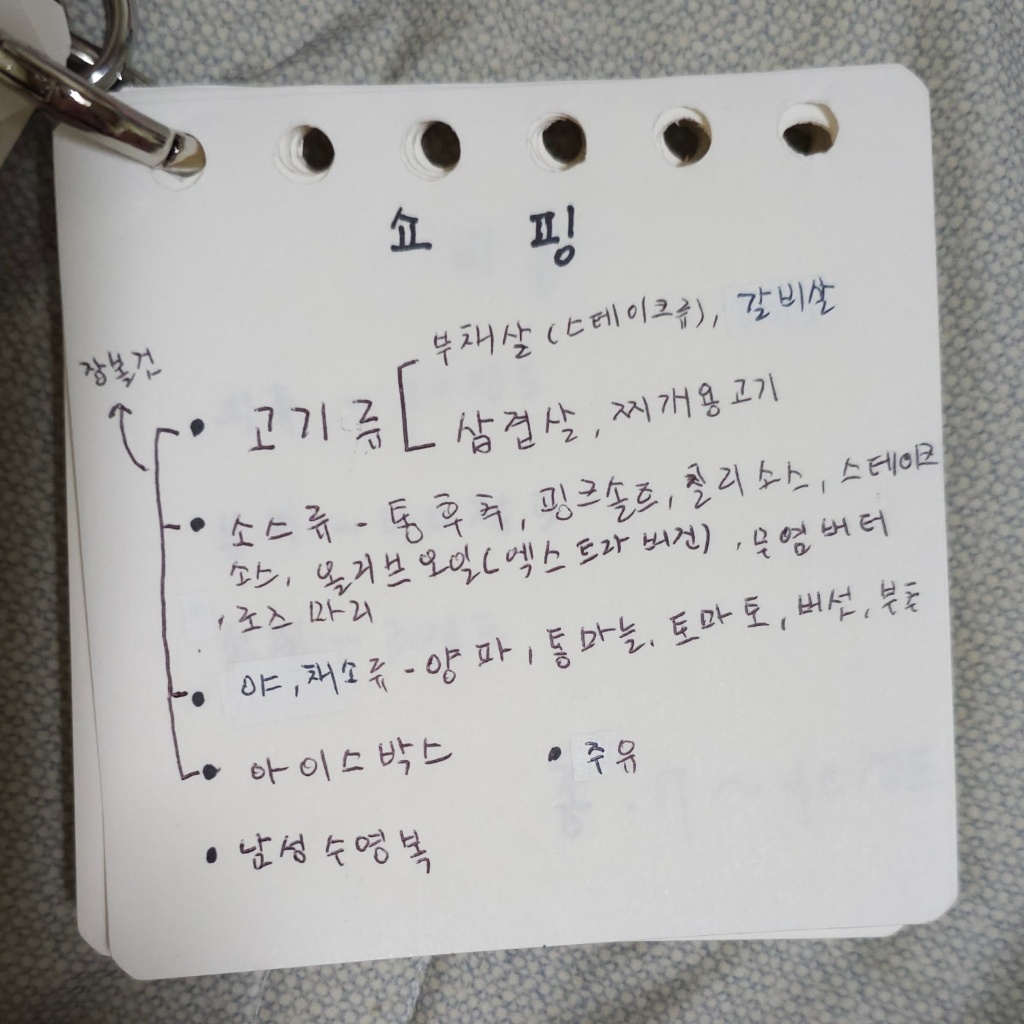 쇼 핑
부채살 (스테이크류), 갈비살
장볼것
• 고기류
삼겹살, 찌개용고기
• 소스류 - 통후추, 핑크솔트, 칠리소스, 스테이크
소스, 올리브오일(엑스트라버진), 무염버터
, 로즈마리
• 야,채소류 - 양파, 통마늘, 토마토, 버섯, 부추
• 아이스박스
• 주유
• 남성수영복